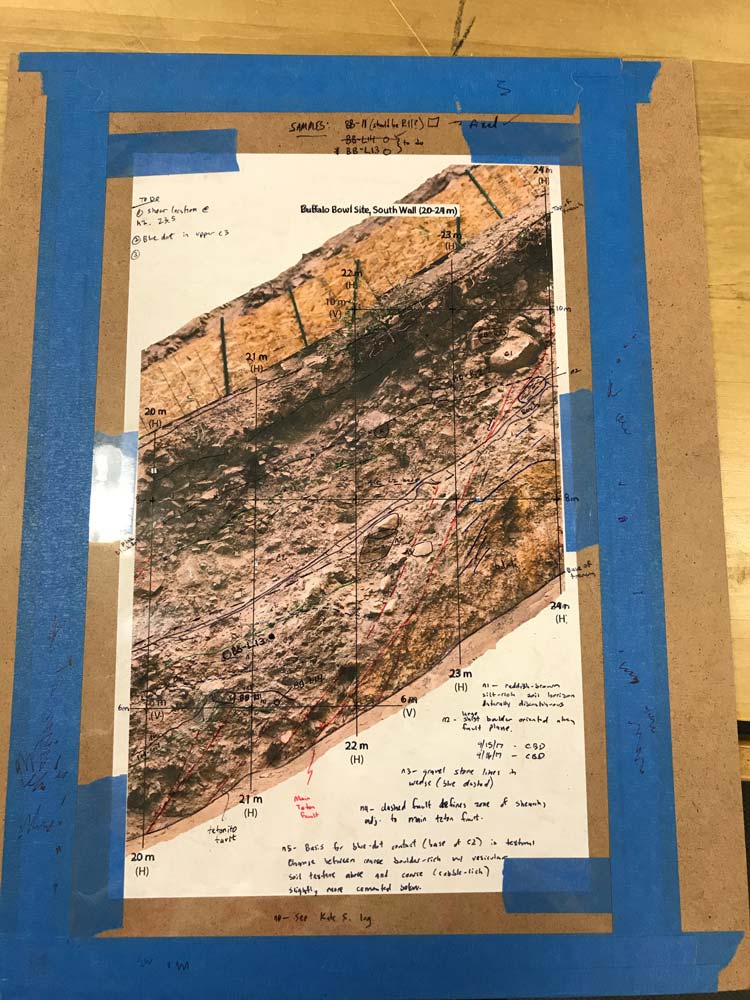 SAMPLES: BB-11 (should be R11?)
BB-L14 O
* BB-L13 O } to do
TO DO
① shear location @
② Blue dot in upper c3
③
Buffalo Bowl Site, South Wall (20-24 m)
24 m
(H)
23 m
(H)
22 m
(H)
10 m
(V)
10m
21 m
(H)
20 m
(H)
G1
n2
8m
Base of
24m
(H)
BB-L13
BB-L14
6m
6 m
(V)
6 m
(V)
23 m
(H)
22 m
(H)
21 m
(H)
20 m
(H)
Main
Teton
Fault
n1 - reddish-brown
silt-rich soil horizon
laterally discontinuous
n2 - large schist boulder oriented along
fault plane.
9/15/17 - CBD
9/16/17 - CBD
n3 - gravel stone lines in
wedge (blue dashed)
n4 - dashed fault defines zone of shearing
adj. to main teton fault.
n5 - Basis for blue-dot contact (base of c2) is textural
change between coarse boulder-rich w/ vesicular
soil texture above and coarse (cobble-rich)
slightly more cemented below.
See Kate S. log